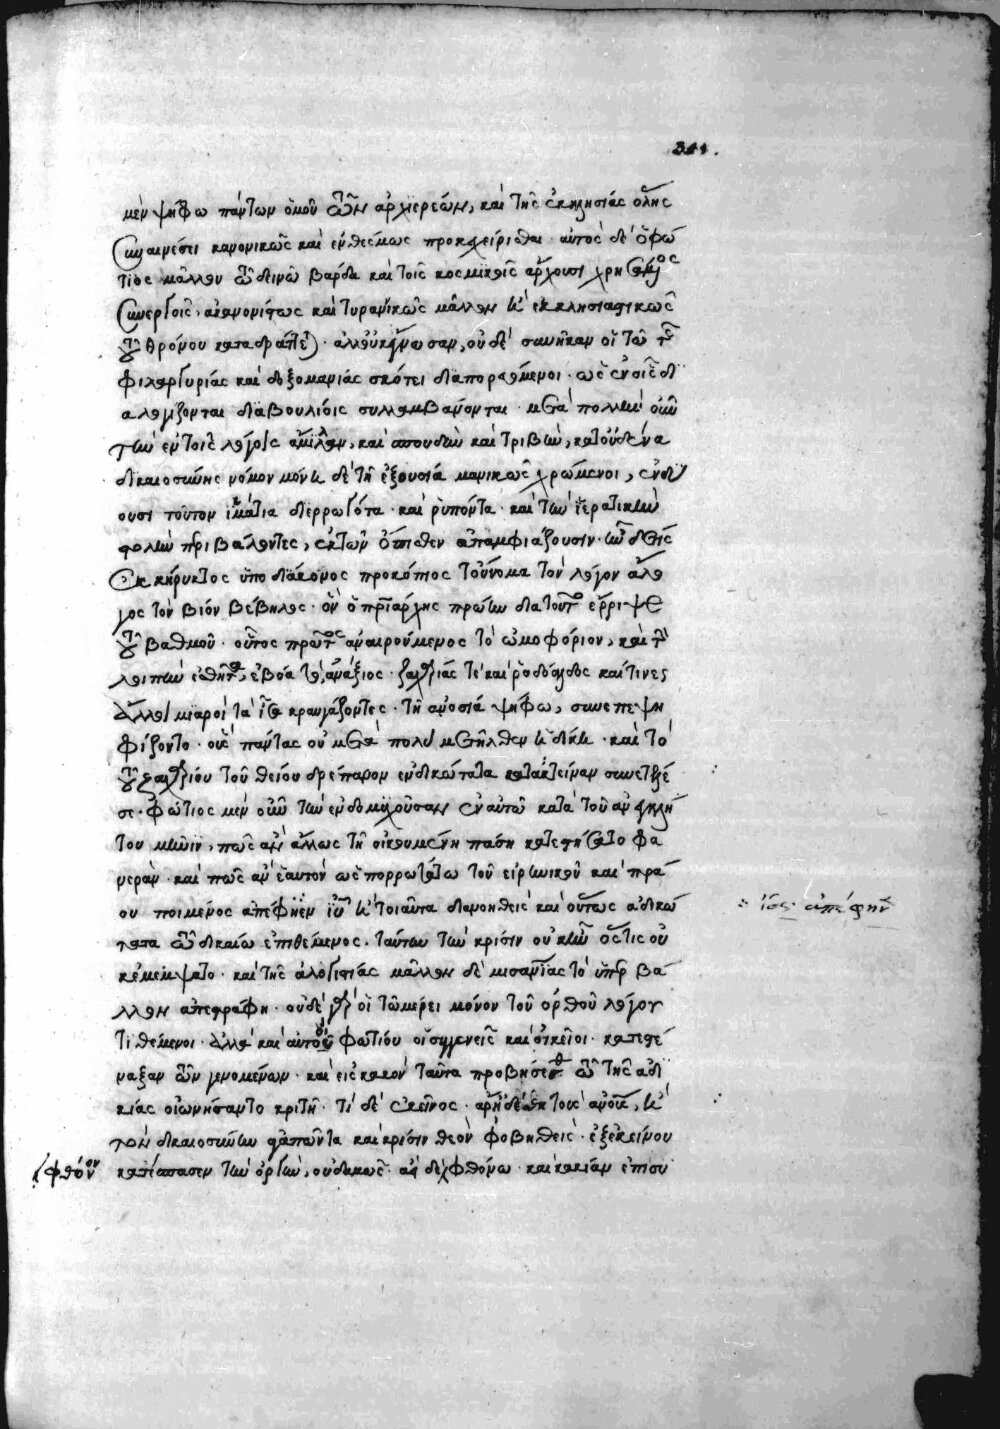 311.
μὲν ψήφω πάντων ὁμοῦ τῶν ἀρχιερέων, καὶ τῆς ἐκκλησίας ὅλης
συναινέσει κανονικῶς καὶ ἐνθέσμως προκεχείρισθαι· αὐτὸς δὲ ὁ φώ
τιος μᾶλλον τῶ δεινῶ βάρδα καὶ τοῖς κοσμικοῖς ἄρχουσι χρησάμενος
συνεργοῖς, ἀκανονίστως καὶ τυραννικῶς μᾶλλον ἢ ἐκκλησιαστικῶς
τοῦ θρόνου κατεδράξατο· ἀλλ' οὐκ ἔγνωσαν, οὐδὲ συνῆκαν οἱ τῶ τῆς
φιλαργυρίας καὶ δοξομανίας σκότει διαπορευόμενοι· ὡς ἐν οἷς δι
αλογίζονται διαβουλίοις συλλαμβάνονται· μετὰ πολλὴν οὖν
τὴν ἐν τοῖς λόγοις ἅμιλλαν, καὶ σπουδὴν καὶ τριβὴν, κατ' οὐδένα
δικαιοσύνης νόμον μόνη δὲ τῆ ἐξουσία μανικῶς χρώμενοι, ἐνδύ
ουσι τοῦτον ἱμάτια διερρωγότα· καὶ ῥυπόντα· καὶ τὴν ἱερατικὴν
στολὴν περιβαλόντες, ἐκ τῶν ὄπισθεν ἀπαμφιάζουσιν· ὧν δὲ τις
ἐκ κήρυκτος ὑποδιάκονος προκόπιος τοὔνομα τὸν λόγον ἄλο
γος τὸν βίον βέβηλος· ὃν ὁ πατριάρχης πρώην διὰ τοῦτο ἔρριψε
τοῦ βαθμοῦ· οὗτος πρῶτος ἀναιρούμενος τὸ ὠμοφόριον, καὶ τὴν
λοιπὴν ἐσθῆτα, ἐβόα τὸ, ἀνάξιος· ζαχαρίας τὲ καὶ ῥοδόαλδος καί τινες
ἄλλοι μιαροὶ τὰ ἴσα κραυγάζοντες· τῆ ἀνοσία ψήφω, συνεπεψη
φίζοντο· οὓς πάντας οὐ μετὰ πολὺ μετῆλθεν ἡ δίκη· καὶ τὸ
τοῦ ζαχαρίου τοῦ θείου δρέπανον ἐνδικώτατα κατακτεῖναν συνετέλε
σε· φώτιος μὲν οὖν τὴν ἐνδομυχοῦσαν ἐν αὐτῶ κατὰ τοῦ ἀνεγκλή
του μῆνιν, πῶς ἂν ἄλλως τῆ οἰκουμένη πάση κατεστήσατο φα
νεράν· καὶ πῶς ἂν ἑαυτὸν ὡς πορρωτάτω τοῦ εἰρηνικοῦ καὶ πρά
ου ποιμένος ἀπέφηνεν ἢ τοιαῦτα διανοηθεὶς καὶ οὕτως ἀδικώ
τατα τῶ δικαίω ἐπιθέμενος· ταύτην τὴν κρίσιν οὐκ ἦν ὅστις οὐ
κ ἐμέμψατο· καὶ τῆς ἀλογιστίας μᾶλλον δὲ μισανθρωπίας τὸ ὑπερβά
λλον ἀπεγράφη· οὐδὲ γὰρ οἱ τῶ μέρει μόνον τοῦ ὀρθοῦ λόγου
τιθέμενοι· ἀλλὰ καὶ αὐτοῦ φωτίου οἱ συγγενεῖς καὶ οἰκεῖοι· κατεστέ
ναξαν τῶν γινομένων· καὶ εἰς κακὸν ταῦτα προβήσεσθαι τῶ τῆς ἀδι
κίας οἰωνήσαντο κριτῆ· τί δὲ ἐκεῖνος·
τὸν δικαιοσύνην ἀγαπῶντα καὶ κρίσιν θεὸν φοβηθεὶς· ἐξ ἐκείνου
κατέπαυσεν τὴν ὀργὴν, οὐδαμῶς· φθόνω· καὶ κακίαν ἐπισυ
φθόνον
ἴσως ἀπέφηνε